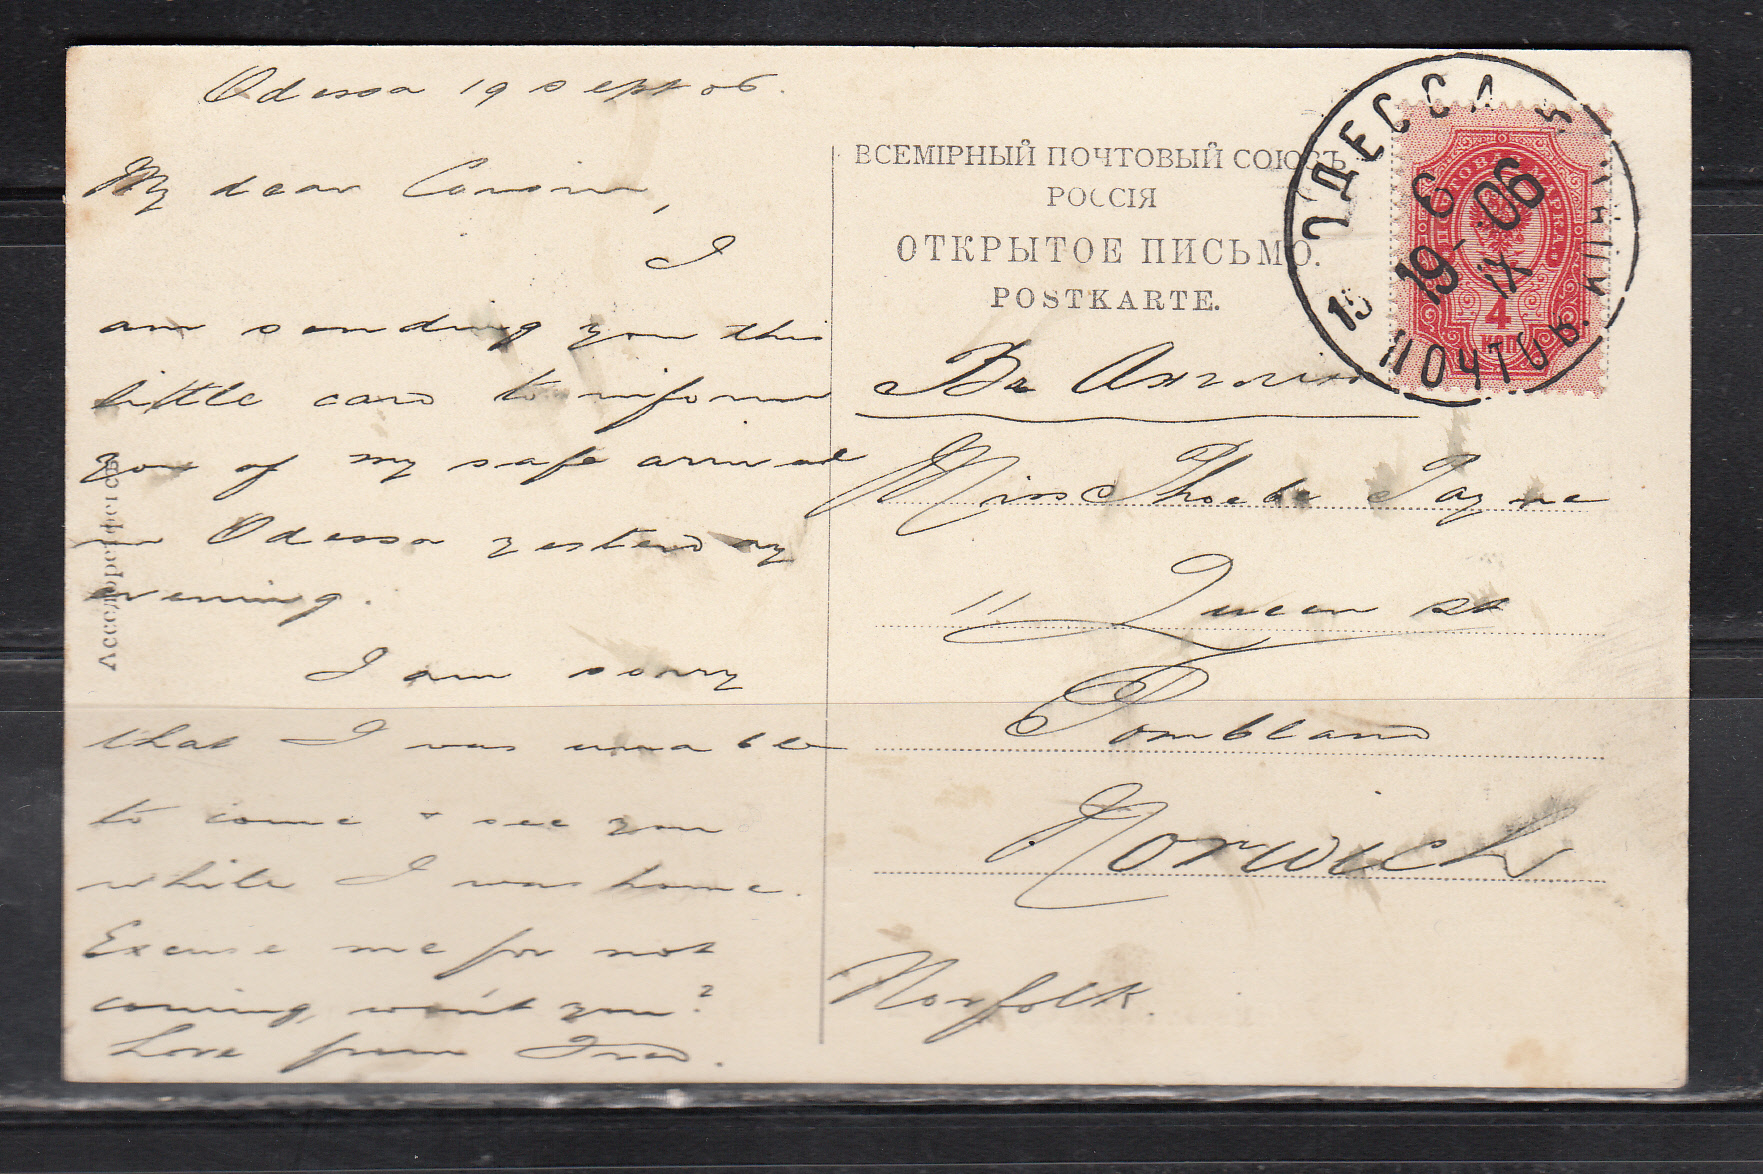 Odessa 19 Sept 06.
My dear Cousin,
I
am sending you this
little card to inform
you of my safe arrival
in Odessa yesterday
evening.
I am sorry
that I was unable
to come & see you
while I was home.
Excuse me for not
coming, won't you?
Love from Fred.
ВСЕМІРНЫЙ ПОЧТОВЫЙ СОЮЗЪ
РОССІЯ
ОТКРЫТОЕ ПИСЬМО.
POSTKARTE.
Въ Англію
Miss Phoebe Jayne
11 Queen St
Tombland
Norwich
Norfolk.
ОДЕССА
6
19 IX 06
ПОЧТОВ.
4
КОП